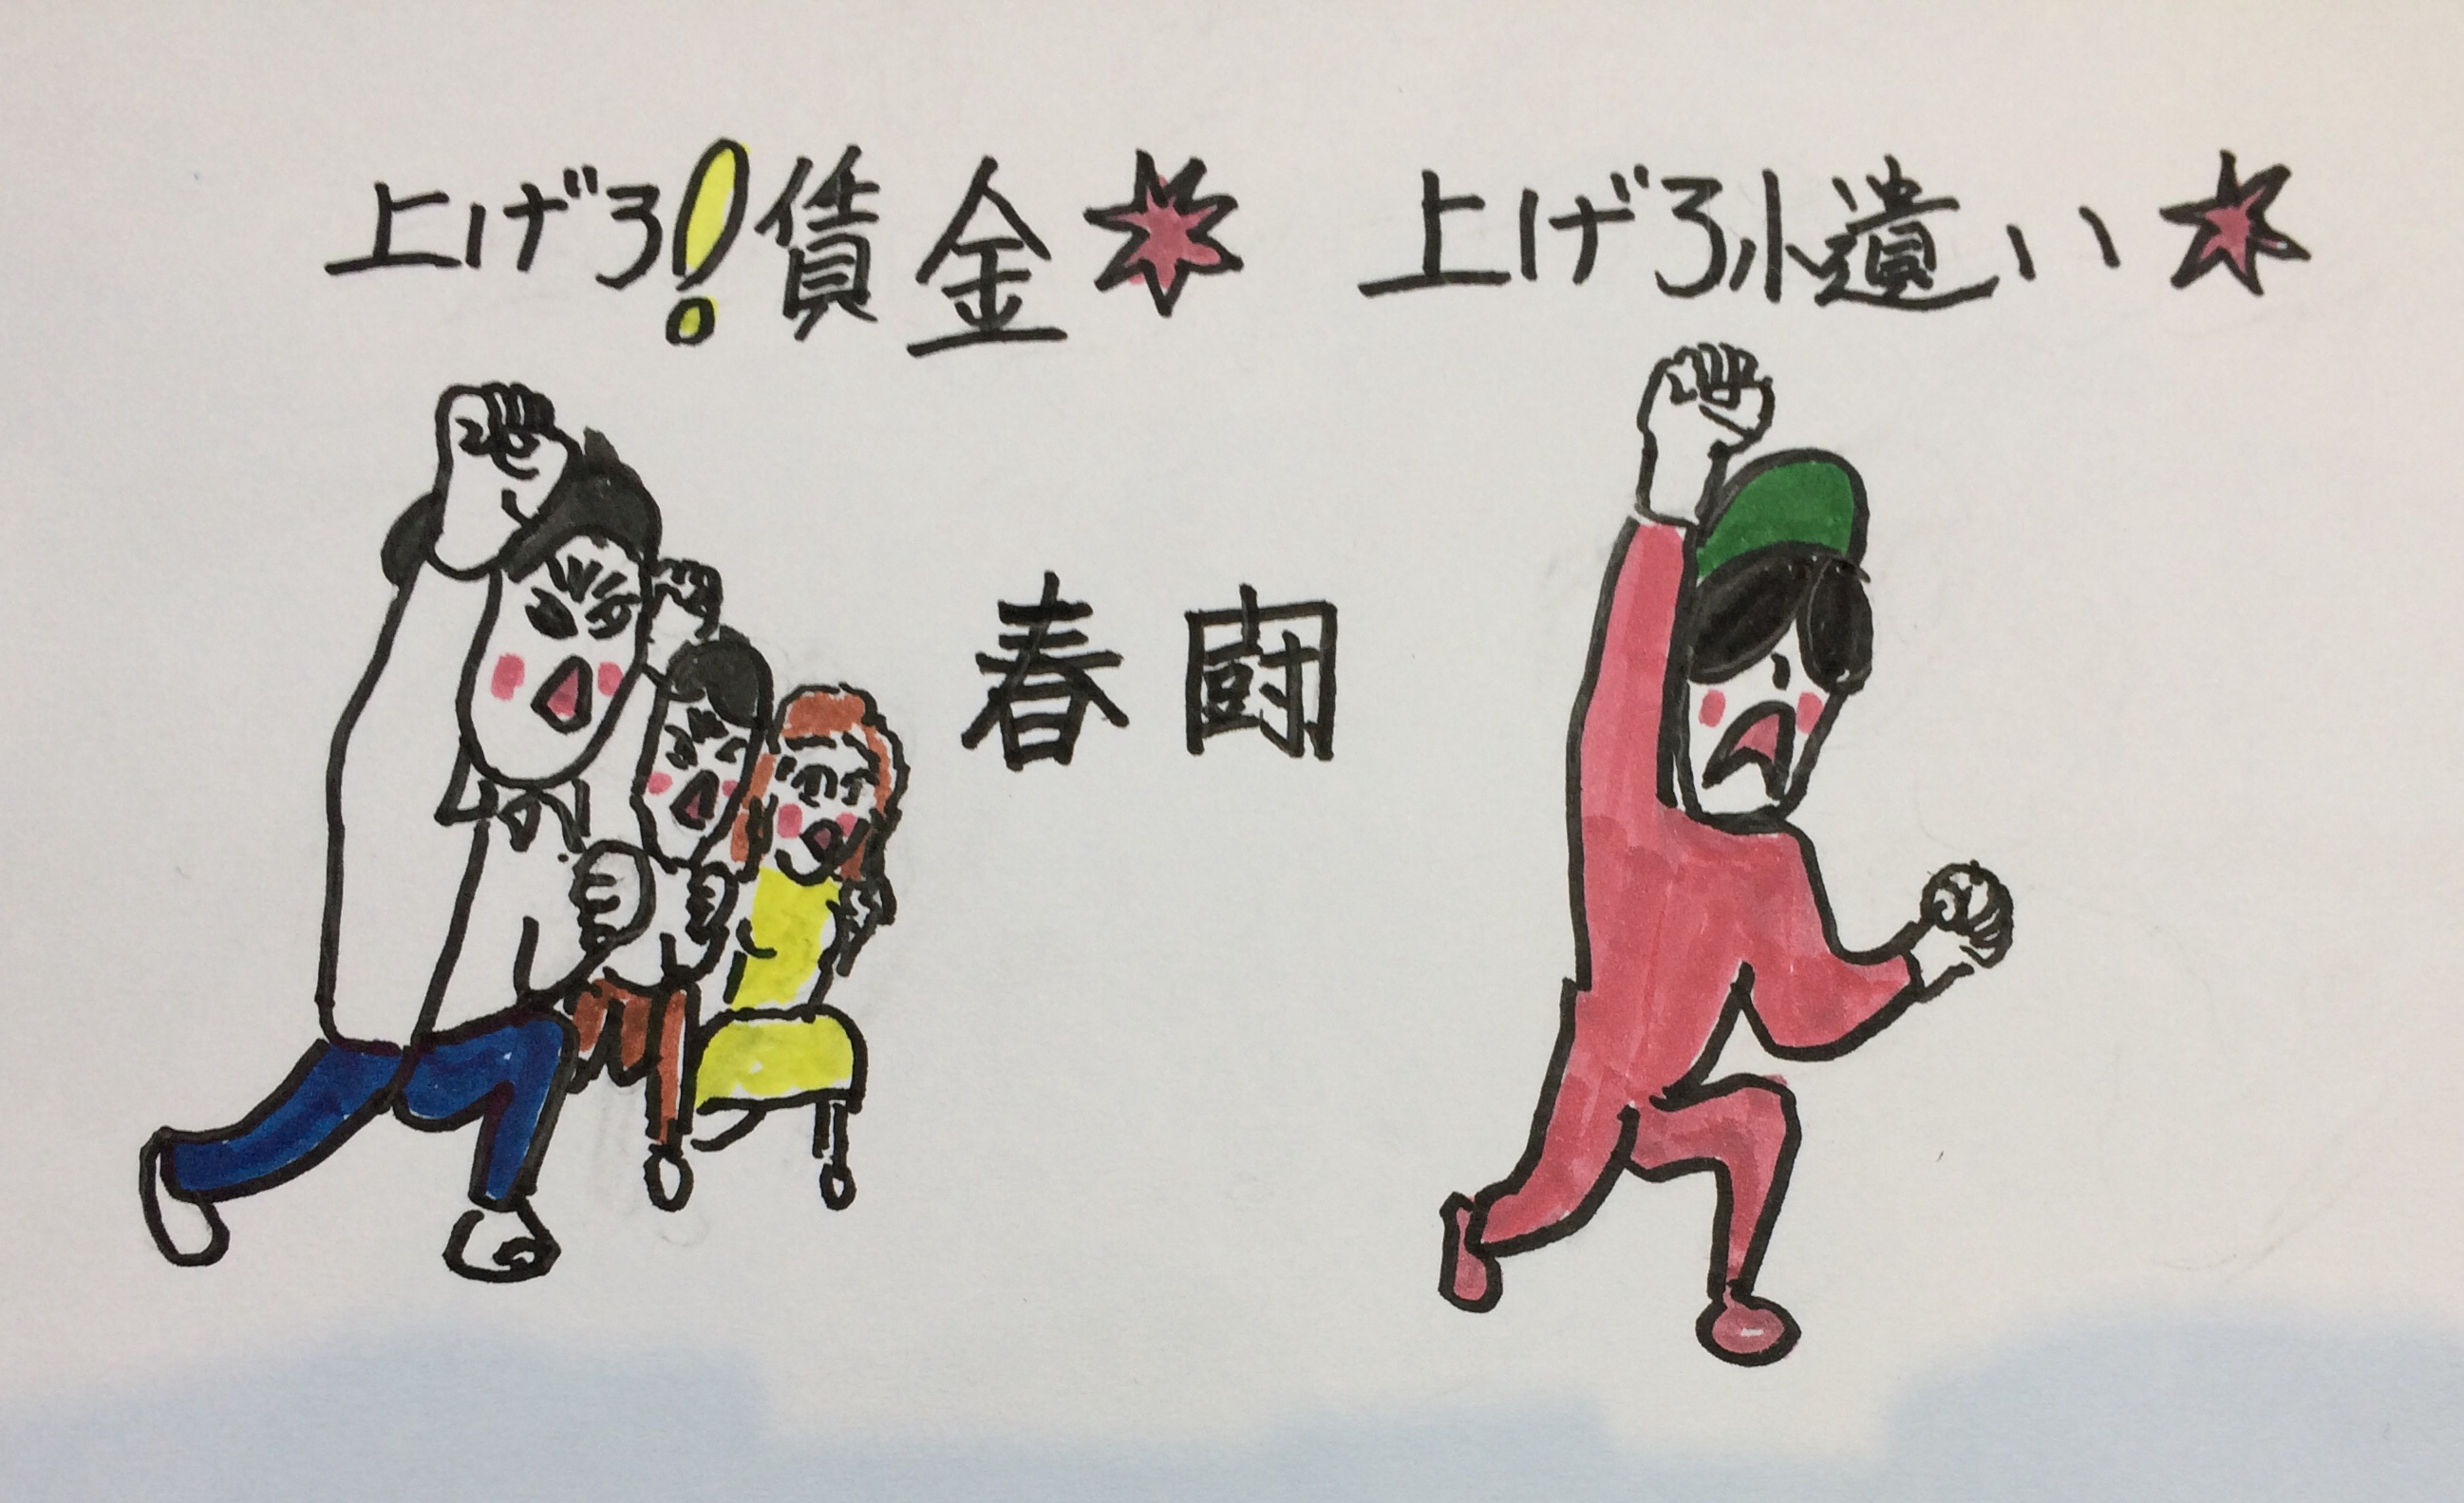 上げろ!賃金 上げろ小遣い
春闘